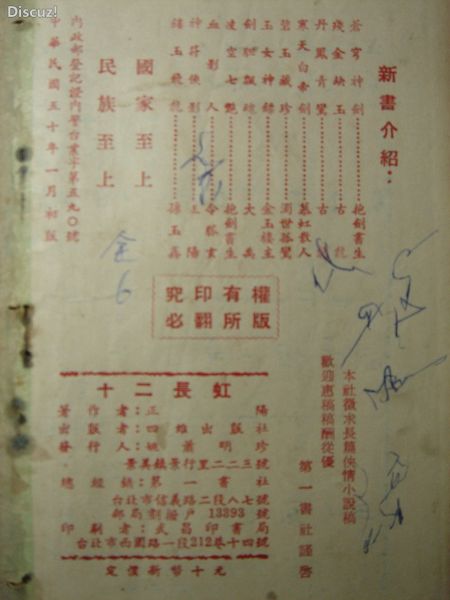 Discuz!
新書介紹：
蒼穹神劍……抱劍書生
殘金缺玉……古龍
丹鳳青鸞……古
寒天白帝劍……慕虹散人
碧玉藏珍……濁世孤鸞
玉女神錄……金玉樓主
劍魄飄魂……大禹
凌空七艷……抱劍書生
血影人……令狐玄
神符俠影……陽
玉飛龍……孫玉鑫
國家至上
民族至上
內政部登記證內警台業字第五九〇號
中華民國五十年一月初版
金
6
究印有權
必翻所版
本社徵求長篇俠情小說稿
歡迎惠稿稿酬從優
第一書社謹啓
十二長虹
著作者：正陽
出版者：四維出版社
發行人：姚蕭明珍
景美鎮景行里二二三號
總經銷：第一書社
台北市信義路二段八七號
郵局劃撥戶 13393 號
印刷者：武昌印書局
台北市西園路一段212巷十四號
定價新幣十元